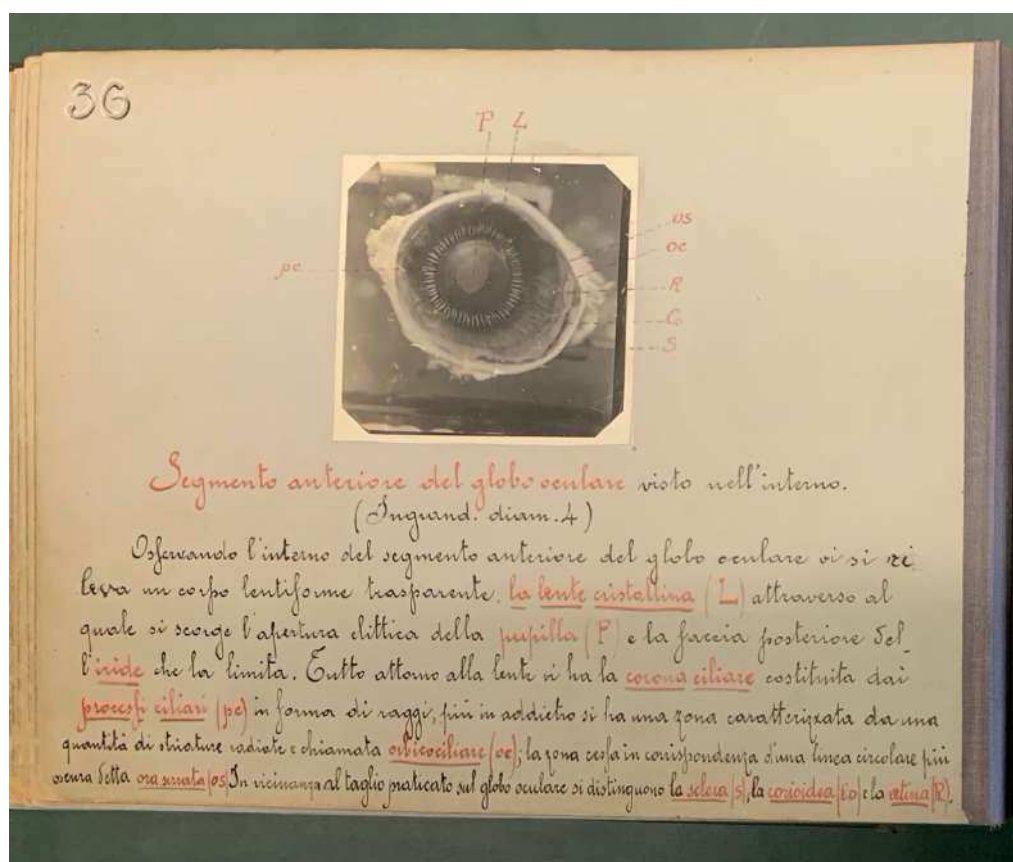 36
P L
os
oc
pc
R
Co
S
Segmento anteriore del globo oculare visto nell'interno.
(Ingrand. diam. 4)
Osservando l'interno del segmento anteriore del globo oculare vi si ri
leva un corpo lentiforme trasparente, la lente cristallina (L) attraverso al
quale si scorge l'apertura elittica della pupilla (P) e la faccia posteriore del
l'iride che la limita. Tutto attorno alla lente vi ha la corona ciliare costituita dai
processi ciliari (pc) in forma di raggi, più in addietro si ha una zona caratterizzata da una
quantità di striature radiate e chiamata orbicociliare (oc); la zona cessa in corrispondenza d'una linea circolare più
oscura detta ora serrata (os). In vicinanza al taglio praticato sul globo oculare si distinguono la sclera (s), la corioidea (Co) e la retina (R).